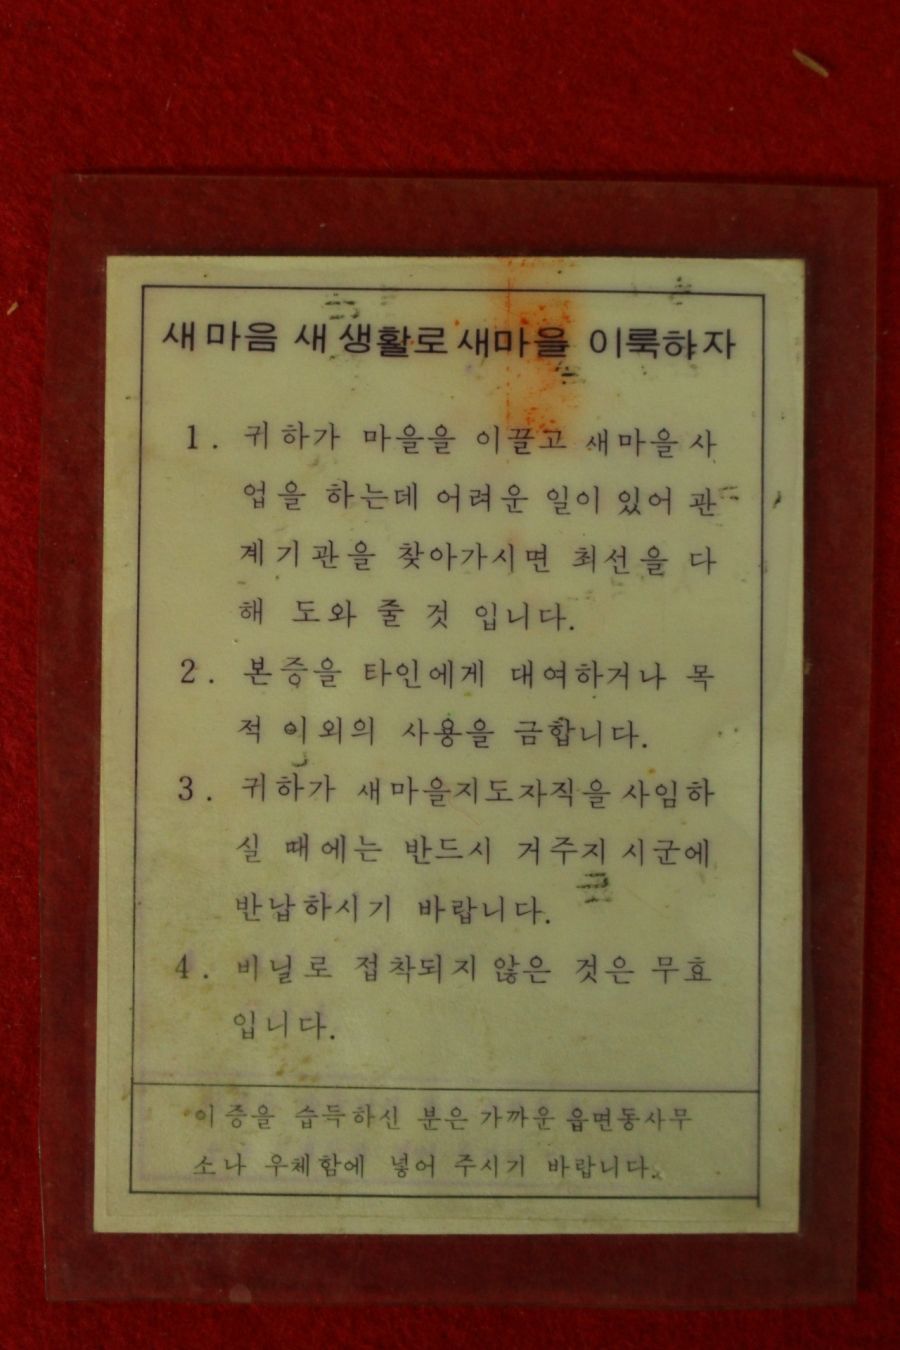 새마음 새생활로 새마을 이룩하자
1. 귀하가 마을을 이끌고 새마을사
업을 하는데 어려운 일이 있어 관
계기관을 찾아가시면 최선을 다
해 도와 줄 것 입니다.
2. 본증을 타인에게 대여하거나 목
적 이외의 사용을 금합니다.
3. 귀하가 새마을지도자직을 사임하
실 때에는 반드시 거주지 시군에
반납하시기 바랍니다.
4. 비닐로 접착되지 않은 것은 무효
입니다.
이 증을 습득하신 분은 가까운 읍면동사무
소나 우체함에 넣어 주시기 바랍니다.